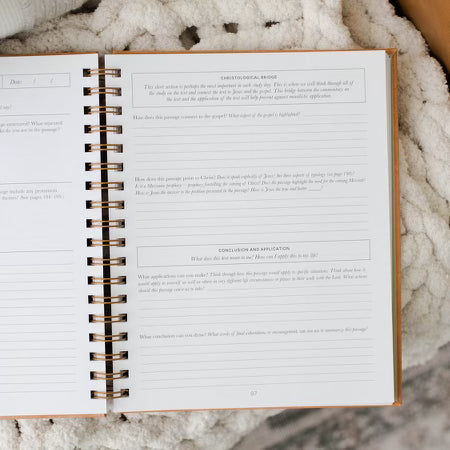 Date: / /
CHRISTOLOGICAL BRIDGE
This short section is perhaps the most important in each study day. This is where we will think through all of
the study on the text and connect the text to Jesus and the gospel. This bridge between the commentary on
the text and the application of the text will help prevent against moralistic application.
How does this passage connect to the gospel? What aspect of the gospel is highlighted?
How does this passage point to Christ? Does it speak explicitly of Jesus? Are there aspects of typology (see page
Is it a Messianic prophecy – prophecy foretelling the coming of Christ? Does the passage highlight the need for the coming Messiah?
How is Jesus the answer to the problem presented in the passage? How is Jesus the true and better
CONCLUSION AND APPLICATION
What does this text mean to me? How can I apply this to my life?
What applications can you make? Think through how this passage would apply to specific situations. Think about how it
would apply to yourself as well as others in very different life circumstances or places in their walk with the Lord. What actions
should this passage cause us to take?
What conclusion can you draw? What words of final exhortation or encouragement can you use to summarize this passage?
97